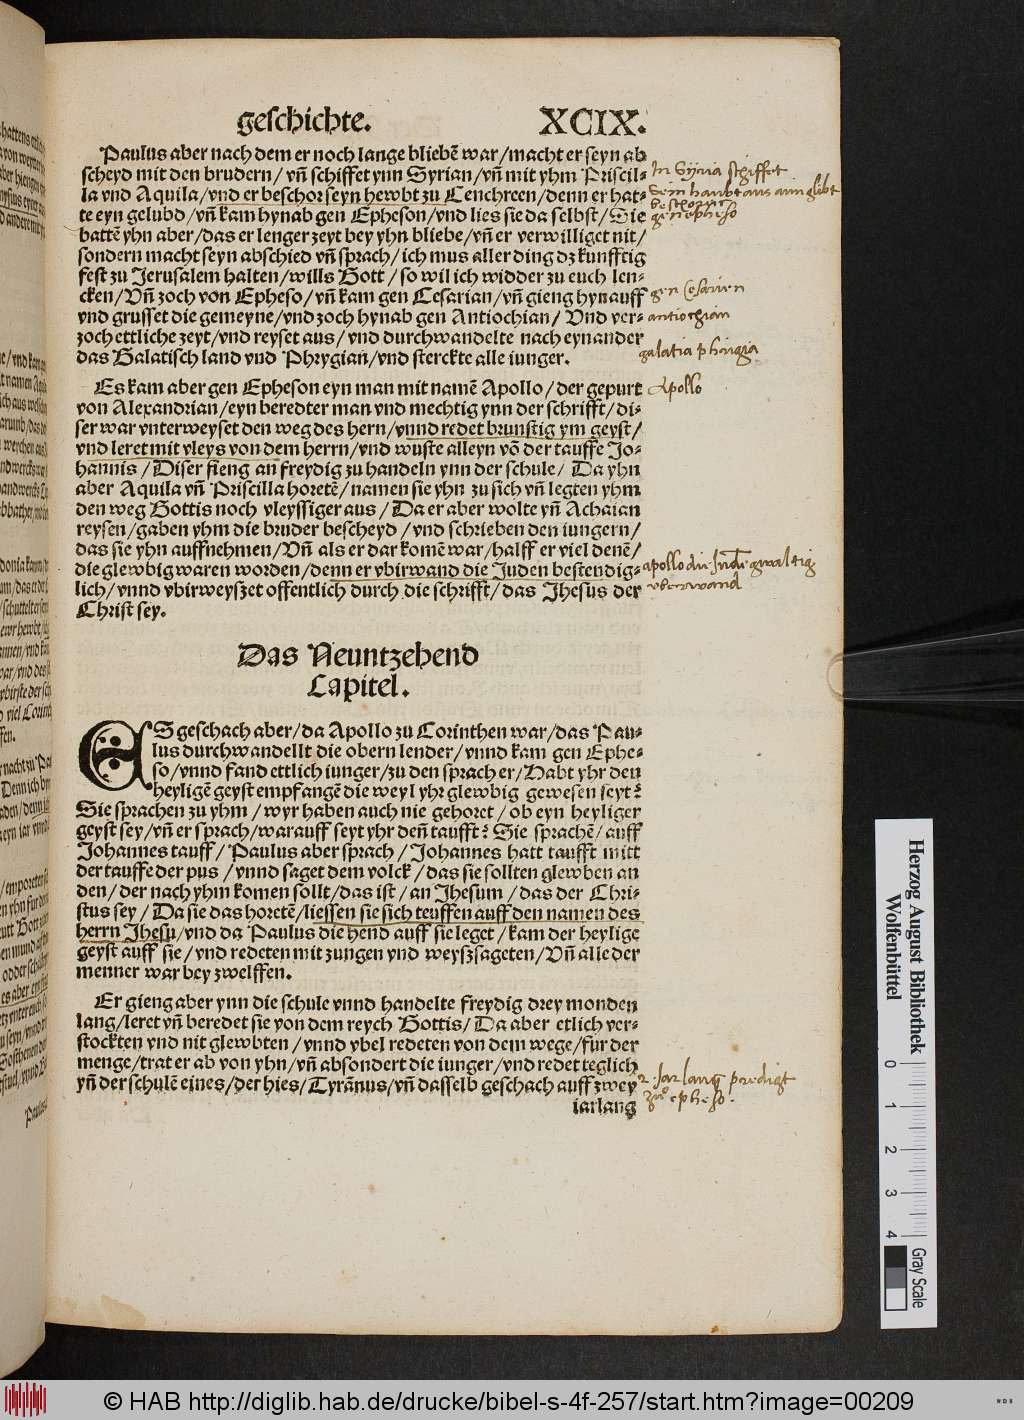 geschichte. XCIX.
Paulus aber nach dem er noch lange bliebē war/macht er seyn ab
scheyd mit den brudern/vñ schiffet ynn Syrian/vñ mit yhm Priscil-
la vnd Aquila/vnd er beschor seyn hewbt zu Cenchreen/denn er hat-
te eyn gelubd/vñ kam hynab gen Epheson/vnd lies sie da selbst/Sie
battē yhn aber/das er lenger zeyt bey yhn bliebe/vñ er verwilliget nit/
sondern macht seyn abschied vñ sprach/ich mus aller ding dz kunfftig
fest zu Jerusalem halten/wills Gott/so wil ich widder zu euch len-
cken/Vñ zoch von Epheso/vñ kam gen Cesarian/vñ gieng hynauff
vnd grusset die gemeyne/vnd zoch hynab gen Antiochian/Vnd ver-
zoch ettliche zeyt/vnd reyset aus/vnd durchwandelte nach eynander
das Galatisch land vnd Phrygian/vnd sterckte alle iunger.
Es kam aber gen Epheson eyn man mit namē Apollo/der gepurt
von Alexandrian/eyn beredter man vnd mechtig ynn der schrifft/di-
ser war vnterweyset den weg des hern/vnnd redet brunstig ym geyst/
vnd leret mit vleys von dem herrn/vnd wuste alleyn vō der tauffe Jo-
hannis/Diser fieng an freydig zu handeln ynn der schule/Da yhn
aber Aquila vñ Priscilla horetē/namen sie yhn zu sich vñ legten yhm
den weg Gottis noch vleyssiger aus/Da er aber wolte yñ Achaian
reysen/gaben yhm die bruder bescheyd/vnd schrieben den iungern/
das sie yhn auffnehmen/Vñ als er dar komē war/halff er viel denē/
die glewbig waren worden/denn er vbirwand die Juden bestendig-
lich/vnnd vbirweyszet offentlich durch die schrifft/das Jhesus der
Christ sey.
Das Neuntzehend
Capitel.
ES geschach aber/da Apollo zu Corinthen war/das Pau-
lus durchwandellt die obern lender/vnnd kam gen Ephe-
so/vnnd fand ettlich iunger/zu den sprach er/Habt yhr den
heyligē geyst empfangē die weyl yhr glewbig gewesen seyt?
Sie sprachen zu yhm/wyr haben auch nie gehoret/ob eyn heyliger
geyst sey/vñ er sprach/warauff seyt yhr deñ taufft? Sie sprachē/auff
Johannes tauff/Paulus aber sprach/Johannes hatt taufft mitt
der tauffe der pus/vnnd saget dem volck/das sie sollten glewben an
den/der nach yhm komen sollt/das ist/an Jhesum/das der Chri-
stus sey/Da sie das horetē/liessen sie sich teuffen auff den namen des
herrn Jhesu/vnd da Paulus die hend auff sie leget/kam der heylige
geyst auff sie/vnd redeten mit zungen vnd weyszsageten/Vñ alle der
menner war bey zwelffen.
Er gieng aber ynn die schule vnnd handelte freydig drey monden
lang/leret vñ beredet sie von dem reych Gottis/Da aber etlich ver-
stockten vnd nit glewbten/vnnd vbel redeten von dem wege/fur der
menge/trat er ab von yhn/vñ absondert die iunger/vnd redet teglich
yñ der schulē eines/der hies/Tyrānus/vñ dasselb geschach auff zwey
iarlang
In Syria schiffet
Sein haubt aus aim glibt
beschoren
gen epheso
gen Cesarien
antiochian
galatia phrigia
Apollo
apollo die Juden gwaltig
vberwand
2 Jar lang predigt
zu epheso.
Herzog August Bibliothek
Wolfenbüttel
0 1 2 3 4
Gray Scale
© HAB http://diglib.hab.de/drucke/bibel-s-4f-257/start.htm?image=00209